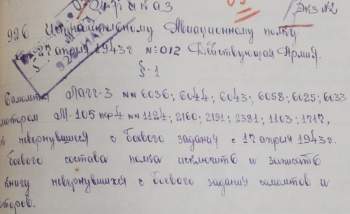 Приказ
Экз №2
926 Истребительному Авиационному полку
27 апреля 1943 г. №012 Действующая Армия.
§-1
Самолеты ЛаГГ-3 №№ 6036; 6044; 6043; 6058; 6025; 6033
моторами М-105 пф №№ 1124; 2160; 2191; 2381; 1103; 1717,
невернувшиеся с боевого задания с 17 апреля 1943 г.
боевого состава полка исключить и записать
книгу невернувшихся с боевого задания самолетов и
торов.